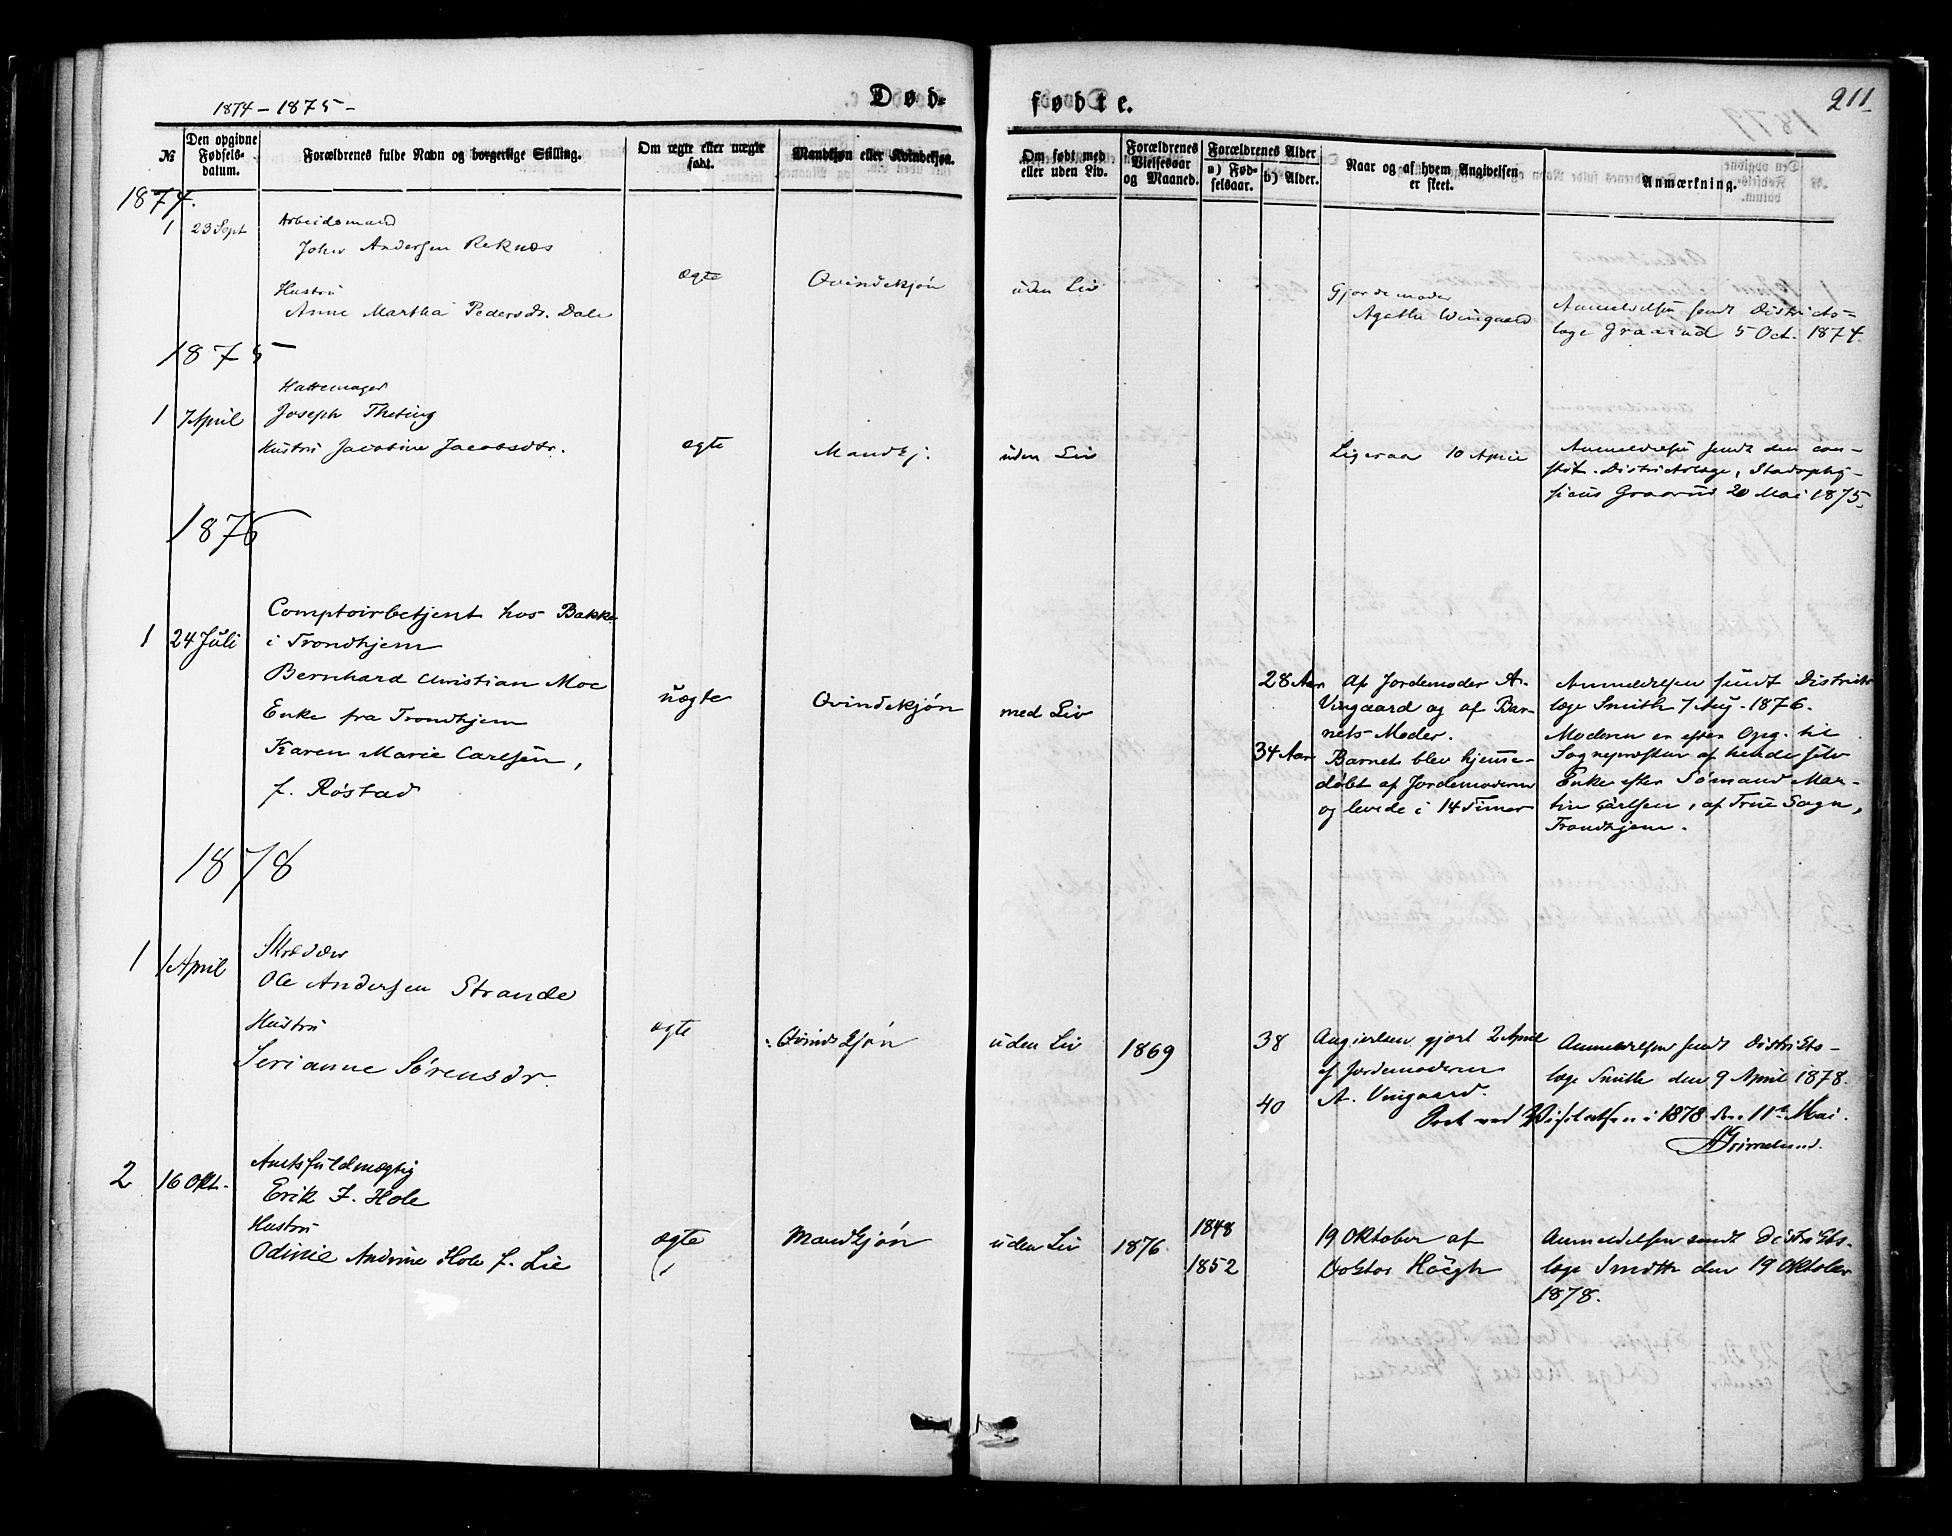 1874-1875-
Død-
fødte.
211
№
Den opgivne Fødsels-datum.
Forældrenes fulde Navn og borgerlige Stilling.
Om ægte eller uægte født.
Mandkjøn eller Kvindekjøn.
Om født med eller uden Liv.
Forældrenes Vielsesaar og Maaned.
Forældrenes Alder
a) Fød-selsaar.
b) Alder.
Naar og af hvem Angivelsen er skeet.
Anmærkning.
1874.
1
23 Sept
Arbeidsmand
John Andersen Reknæs
Hustru
Anne Martha Pedersdr. Dale
Ægte
Qvindekjøn
uden Liv
Gjordemoder
Agathe Wingaard
Anmeldelsen sendt Districts-
læge Graarud 5 Oct. 1874.
1875
1
7 April
Hattemager
Joseph Theting
Hustru Jacobine Jacobsdtr.
ægte
Mandkj.
uden Liv
Ligesaa 10 April
Anmeldelsen sendt den con-
stit. Districtslæge, Stadsphy-
sicus Graarud 20 Mai 1875.
1876
1
24 Juli
Comptoirbetjent hos Bakke
i Trondhjem
Bernhard Christian Moe
Enke fra Trondhjem
Karen Marie Carlsen,
f. Røstad
uægte
Qvindekjøn
med Liv
28 Aar
34 Aar
Af Jordemoder A.
Vingaard og af Bar-
nets Moder.
Barnet blev hjemme-
døbt af Jordemoderen
og levede i 14 Timer
Anmeldelsen sendt Districts
læge Smith 7 Aug. 1876.
Moderen er efter Opg. til
Sognepræsten af hende selv
Enke efter Sømand Mar-
tin Carlsen, af Frue Sogn,
Trondhjem.
1878
1
1 April
Skrædder
Ole Andersen Strande
Hustru
Serianne Sørensdr.
ægte
Qvindekjøn
uden Liv
1869
38
40
Angivelsen gjort 2 April
af Jordemoderen
A. Vingaard.
Anmeldelsen sendt Distrikts-
læge Smith den 9 April 1878.
Seet ved Visitatsen i 1878 den 11te Mai.
AGrimelund.
2
16 Okt.
Amtsfuldmægtig
Erik J. Hole
Hustru
Odine Andrine Hole f. Lie
ægte
Mandkjøn
uden Liv
1876.
1848
1852
19 Oktober af
Doktor Höegh
Anmeldelsen sendt Distrikts-
læge Smith den 19 Oktober
1878.